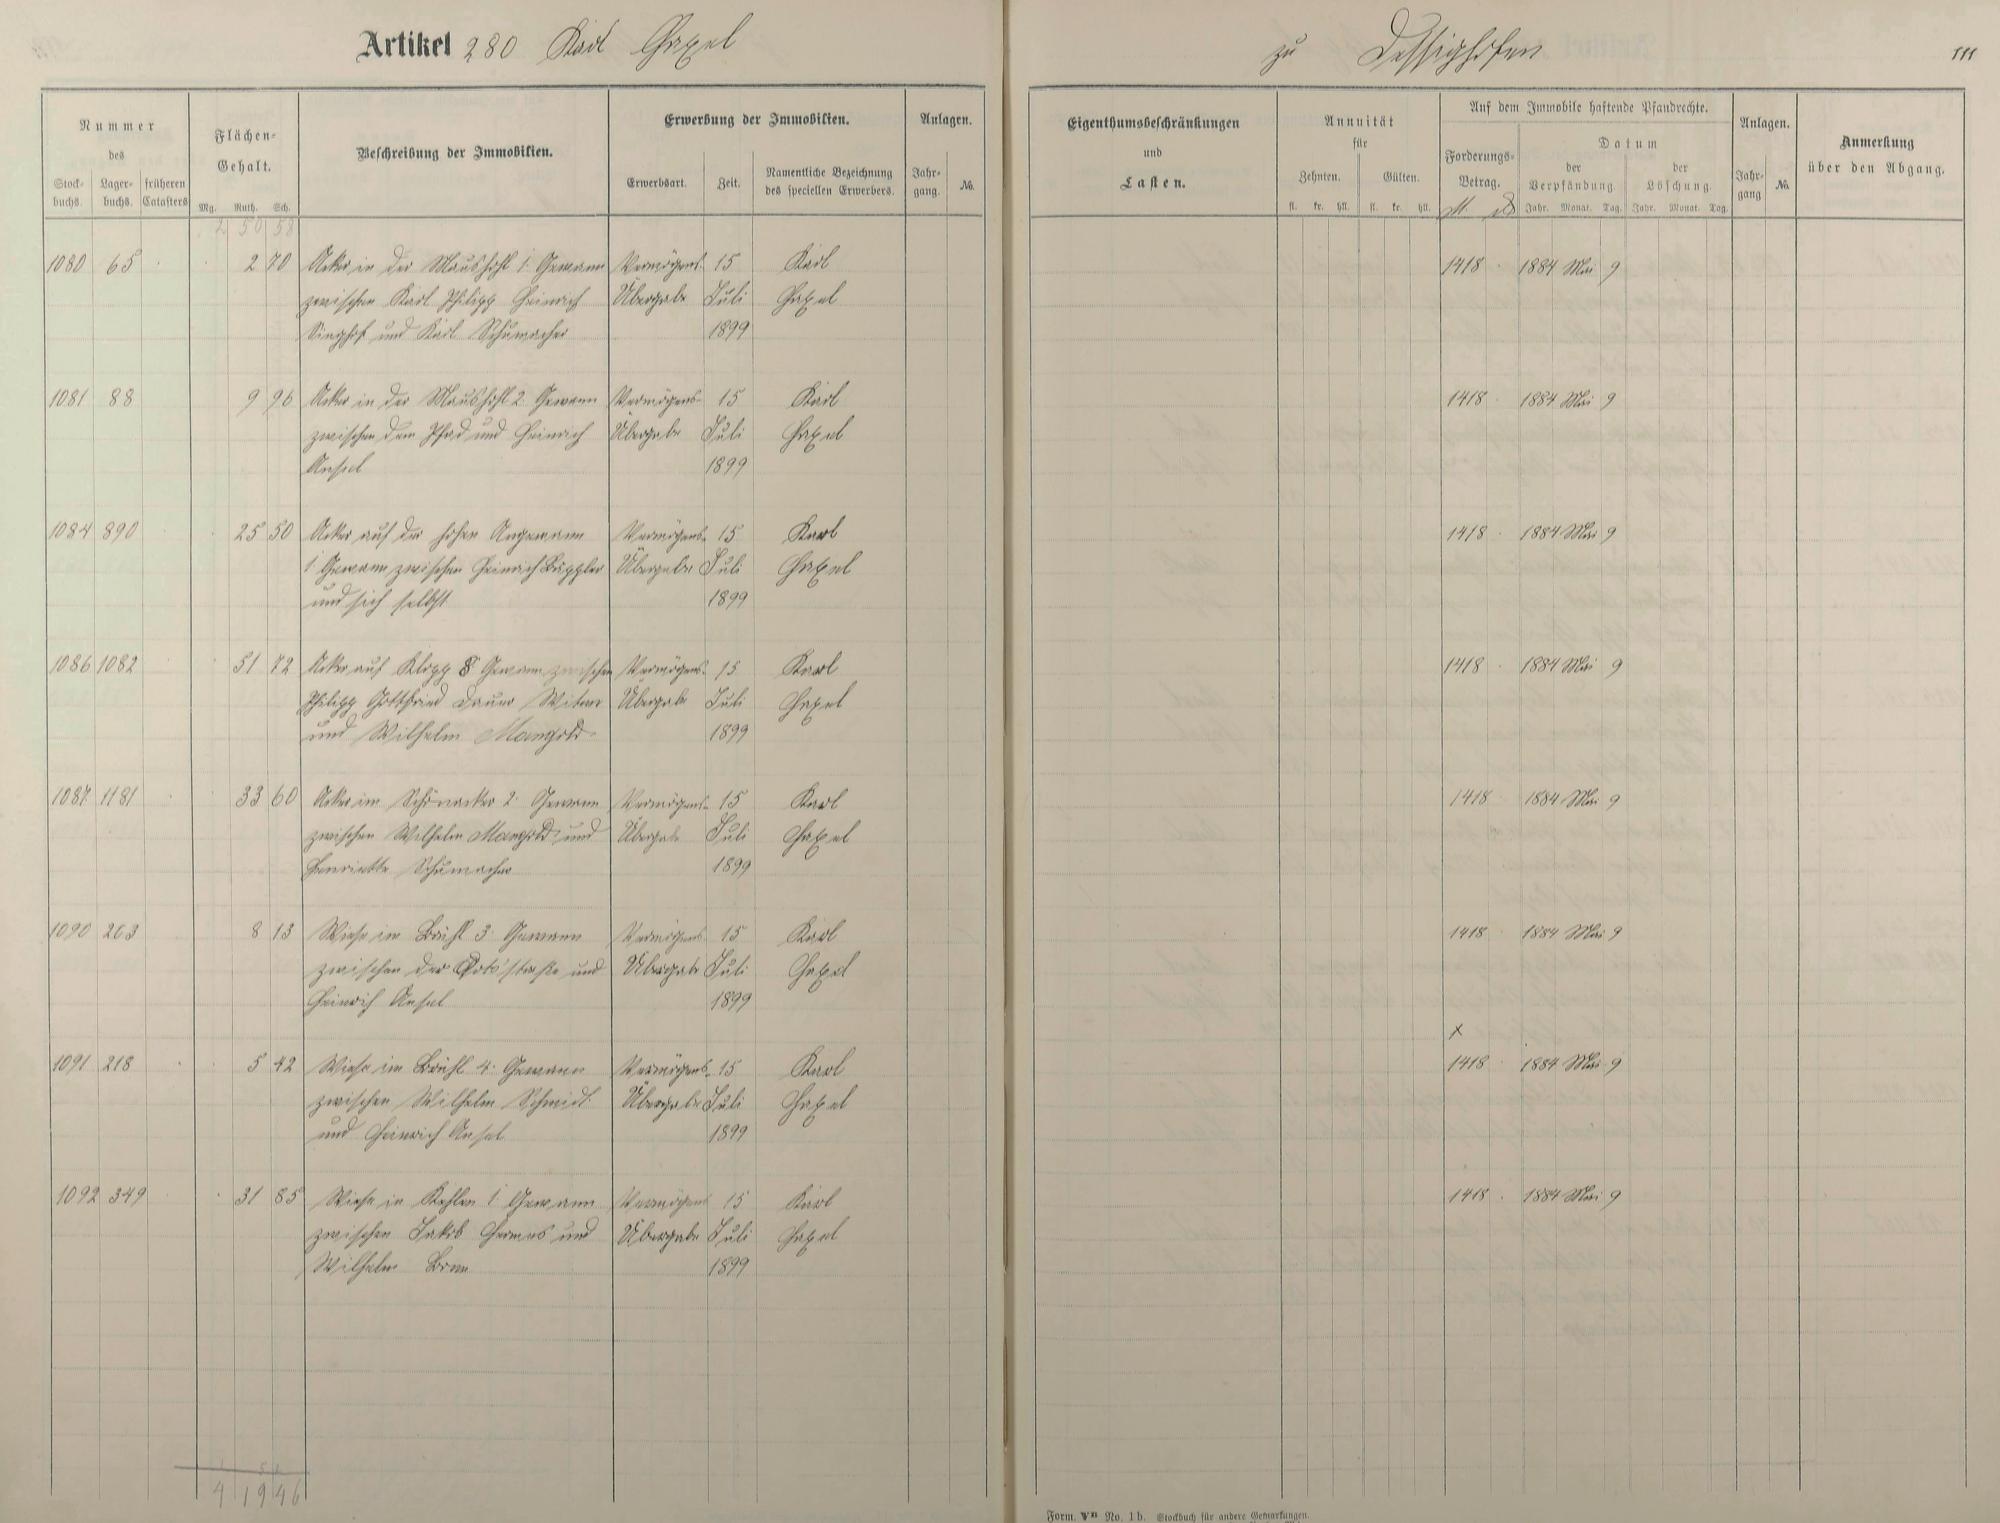 Artikel 280 Karl Hexel
zu Dessighofen
111
Nummer
des
Stock-
buchs.
Lager-
buchs.
früheren
Catasters
Flächen-
Gehalt.
Mg. Ruth. Sch.
Beschreibung der Immobilien.
Erwerbung der Immobilien.
Erwerbsart.
Zeit.
Namentliche Bezeichnung
des speciellen Erwerbers.
Anlagen.
Jahr-
gang.
No.
Eigenthumsbeschränkungen
und
Lasten.
Annuität
für
Zehnten.
Gülten.
fl. kr. hll. fl. kr. hll.
Auf dem Immobile haftende Pfandrechte.
Forderungs-
Betrag.
Datum
der
Verpfändung
der
Löschung
Jahr. Monat. Tag. Jahr. Monat. Tag.
Anlagen.
Jahr-
gang
No.
Anmerkung
über den Abgang.
2 50 58
1080 65 2 70 Acker in der Maushohl 1. Gewann Vermögens- 15 Karl 1418 1884 Mai 9
zwischen Karl Philipp Heinrich Übergabe Juli Hexel
Singhof und Karl Schumacher 1899
1081 88 9 96 Acker in der Maushohl 2. Gewann Vermögens- 15 Karl 1418 1884 Mai 9
zwischen dem Pfad und Heinrich Übergabe Juli Hexel
Ansel 1899
1084 890 25 50 Acker auf der hohen Angewann Vermögens- 15 Karl 1418 1884 Mai 9
1. Gewann zwischen Heinrich Küppler Übergabe Juli Hexel
und sich selbst 1899
1086 1082 51 72 Acker auf Klopp 8 Gewann zwischen Vermögens- 15 Karl 1418 1884 Mai 9
Philipp Gottfried Dauer Witwe Übergabe Juli Hexel
und Wilhelm Mangold 1899
1087 1181 33 60 Acker im Schönacker 2. Gewann Vermögens- 15 Karl 1418 1884 Mai 9
zwischen Wilhelm Mangold und Übergabe Juli Hexel
Henriette Schumacher 1899
1090 203 8 13 Wiese im Brühl 3. Gewann Vermögens- 15 Karl 1418 1884 Mai 9
zwischen der und Übergabe Juli Hexel
Heinrich Ansel 1899
x
1091 218 5 42 Wiese im Brühl 4. Gewann Vermögens- 15 Karl 1418 1884 Mai 9
zwischen Wilhelm Schmidt Übergabe Juli Hexel
und Heinrich Ansel 1899
1092 349 31 85 Wiese in Kehlen 1. Gewann Vermögens 15 Karl 1418 1884 Mai 9
zwischen Jakob Hermes und Übergabe Juli Hexel
Wilhelm 1899
4 19 46
Form. VII No. 1b. Stockbuch für andere Gemarkungen.